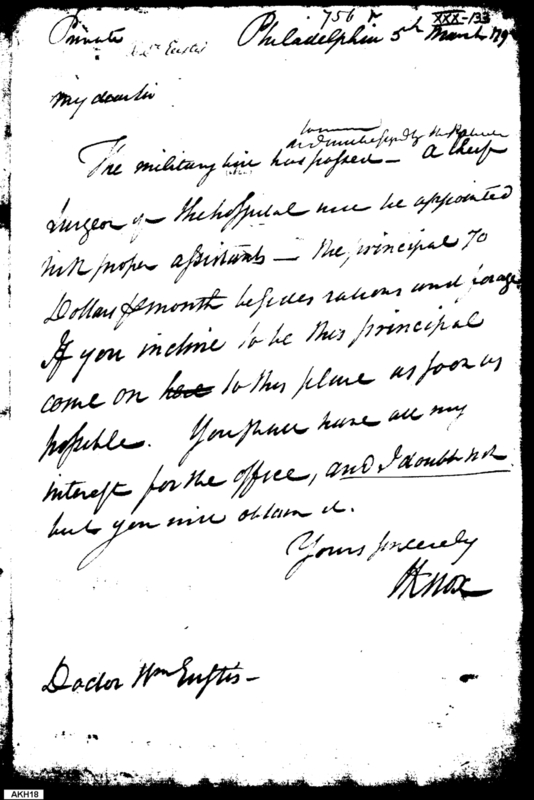 756
XXX-133
Private
Dr Eustis
Philadelphia 5th March 179
My dear sir
The military bill has passed — A Chief
and will be signed by the
Surgeon of the hospital will be appointed
with proper assistants — the principal 70
Dollars pr month besides rations and forage
If you incline to be this principal
come on here to this place as soon as
possible. You shall have all my
interest for the office, and I doubt not
but you will obtain it.
Yours sincerely
HKnox
Doctor Wm Eustis —
AKH18